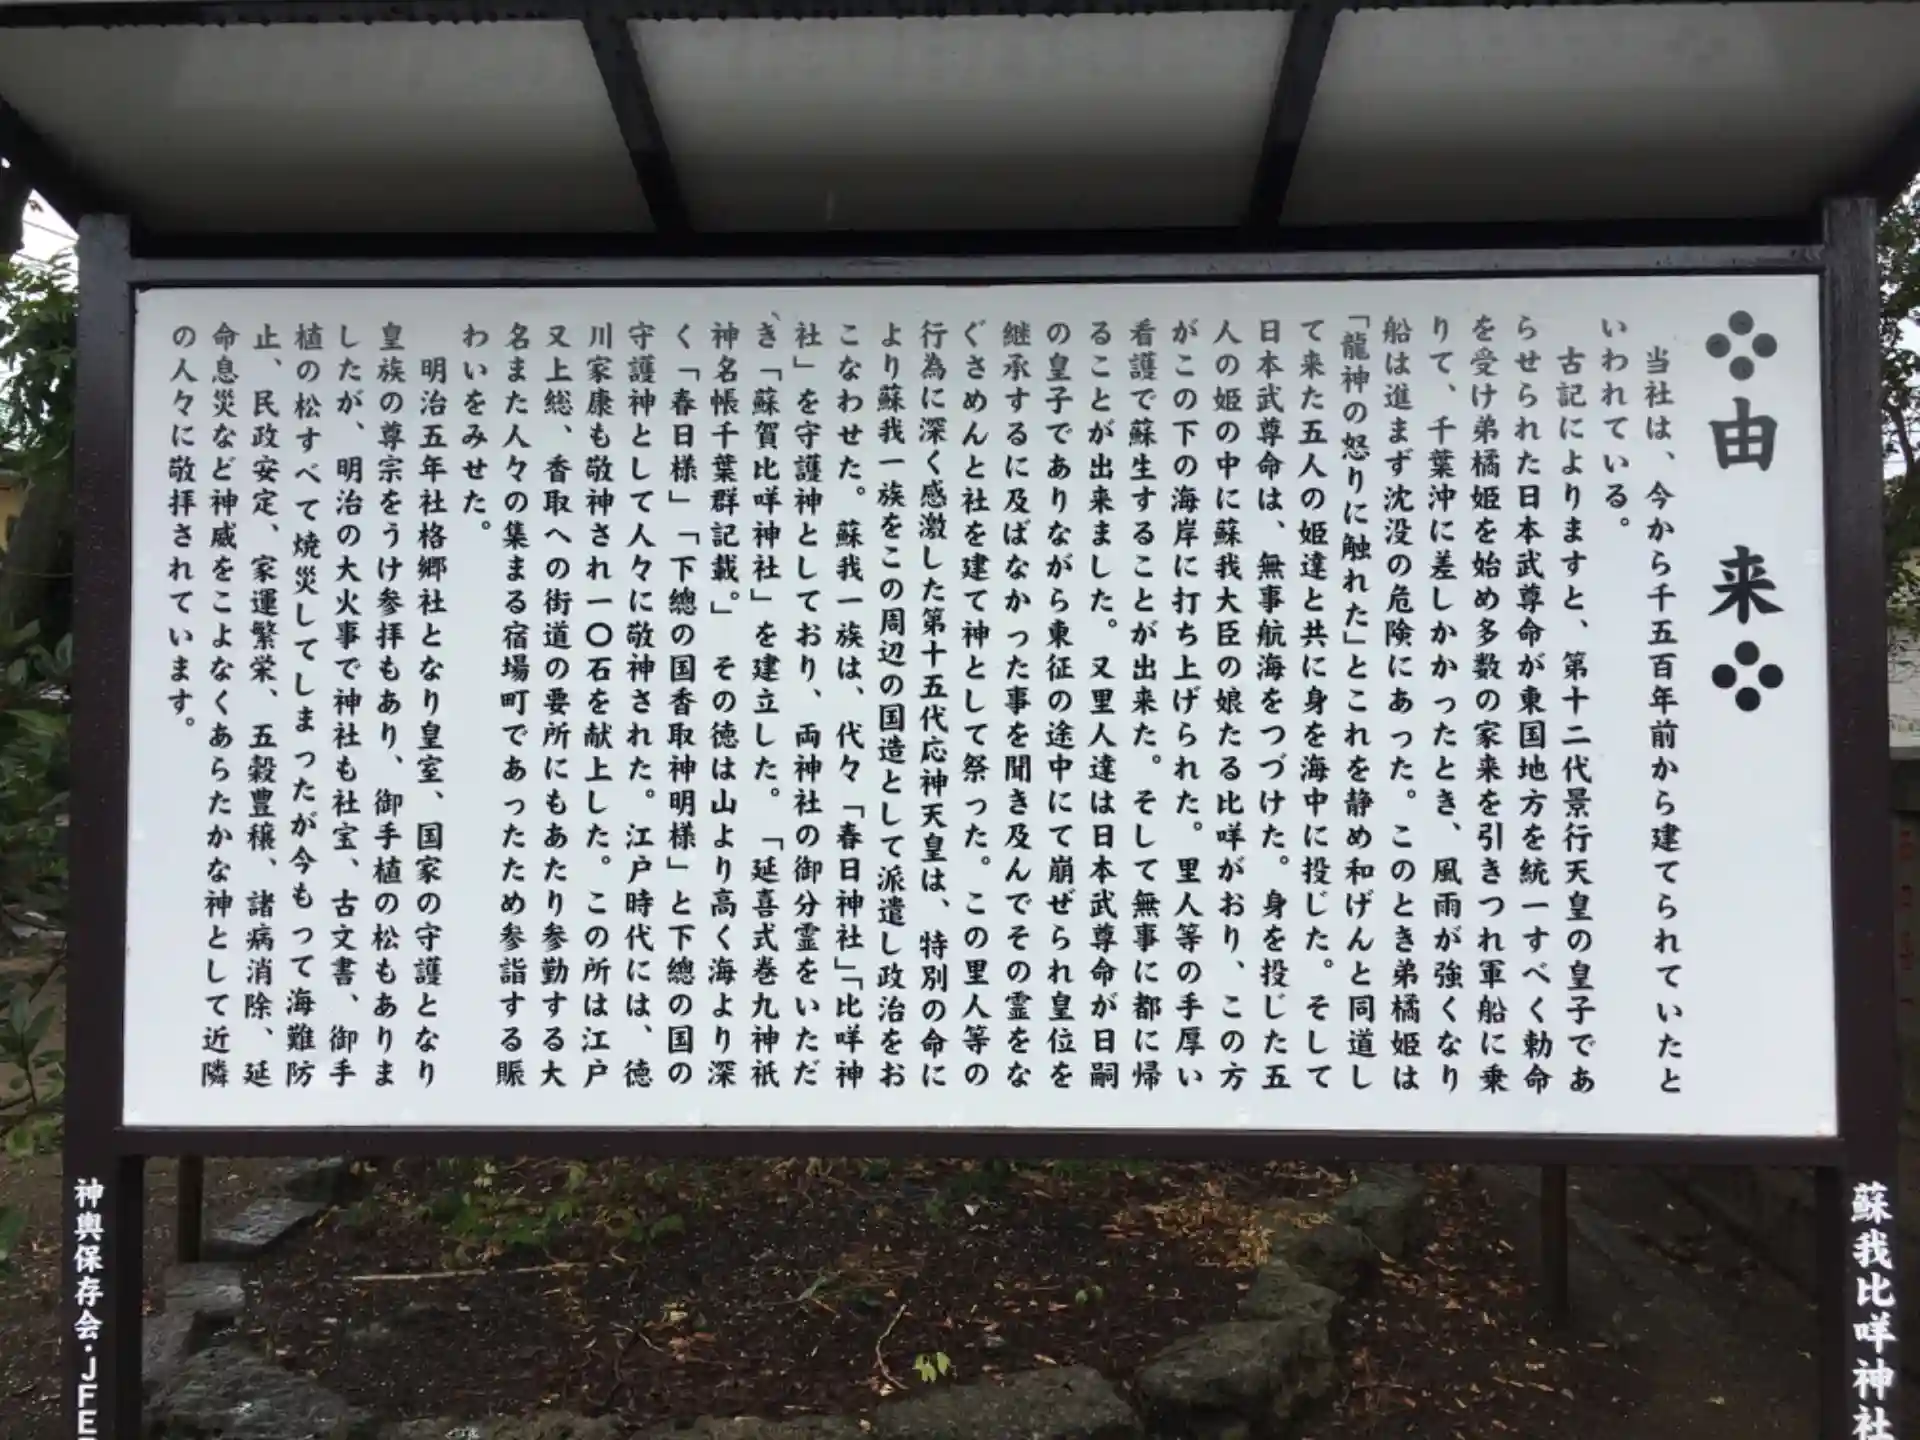 由来
当社は、今から千五百年前から建てられていたと
いわれている。
古記によりますと、第十二代景行天皇の皇子であ
らせられた日本武尊命が東国地方を統一すべく勅命
を受け弟橘姫を始め多数の家来を引きつれ軍船に乗
りて、千葉沖に差しかかったとき、風雨が強くなり
船は進まず沈没の危険にあった。このとき弟橘姫は
「龍神の怒りに触れた」とこれを静め和げんと同道し
て来た五人の姫達と共に身を海中に投じた。そして
日本武尊命は、無事航海をつづけた。身を投じた五
人の姫の中に蘇我大臣の娘たる比咩がおり、この方
がこの下の海岸に打ち上げられた。里人等の手厚い
看護で蘇生することが出来た。そして無事に都に帰
ることが出来ました。又里人達は日本武尊命が日嗣
の皇子でありながら東征の途中にて崩ぜられ皇位を
継承するに及ばなかった事を聞き及んでその霊をな
ぐさめんと社を建て神として祭った。この里人等の
行為に深く感激した第十五代応神天皇は、特別の命に
より蘇我一族をこの周辺の国造として派遣し政治をお
こなわせた。蘇我一族は、代々「春日神社」「比咩神
社」を守護神としており、両神社の御分霊をいただ
き、「蘇賀比咩神社」を建立した。「延喜式巻九神祇
神名帳千葉群記載。」その徳は山より高く海より深
く「春日様」「下總の国香取神明様」と下總の国の
守護神として人々に敬神された。江戸時代には、徳
川家康も敬神され一〇石を献上した。この所は江戸
又上総、香取への街道の要所にもあたり参勤する大
名また人々の集まる宿場町であったため参詣する賑
わいをみせた。
明治五年社格郷社となり皇室、国家の守護となり
皇族の尊宗をうけ参拝もあり、御手植の松もありま
したが、明治の大火事で神社も社宝、古文書、御手
植の松すべて焼災してしまったが今もって海難防
止、民政安定、家運繁栄、五穀豊穣、諸病消除、延
命息災など神威をこよなくあらたかな神として近隣
の人々に敬拝されています。
蘇我比咩神社
神輿保存会・JFE